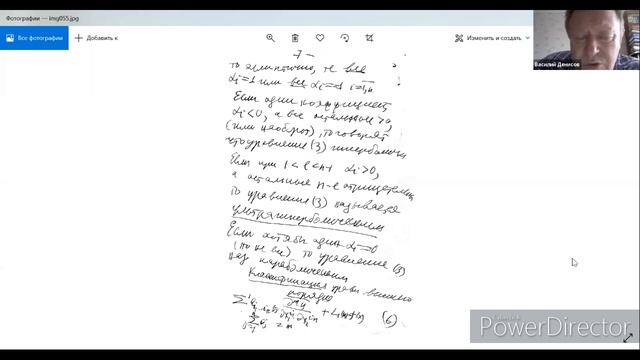 Фотографии — img055.jpg
Все фотографии
Добавить к
Изменить и создать
Василий Денисов
- 7 -
то эллиптично, те все
αi=1 или все αi=-1 i=1,n
Если один коэффициент
αi<0, а все остальные >0,
(или наоборот), то говорят
что уравнение (3) гиперболич
Если при 1<l<n-1 αi>0,
а остальные n-l отрицательн
то уравнение (3) называется
ультрагиперболическим
Если хотя бы один αi=0
(но не все) то уравнение (3)
наз параболическим
Классификация уравн высокого
порядка
(6)
Created with
PowerDirector